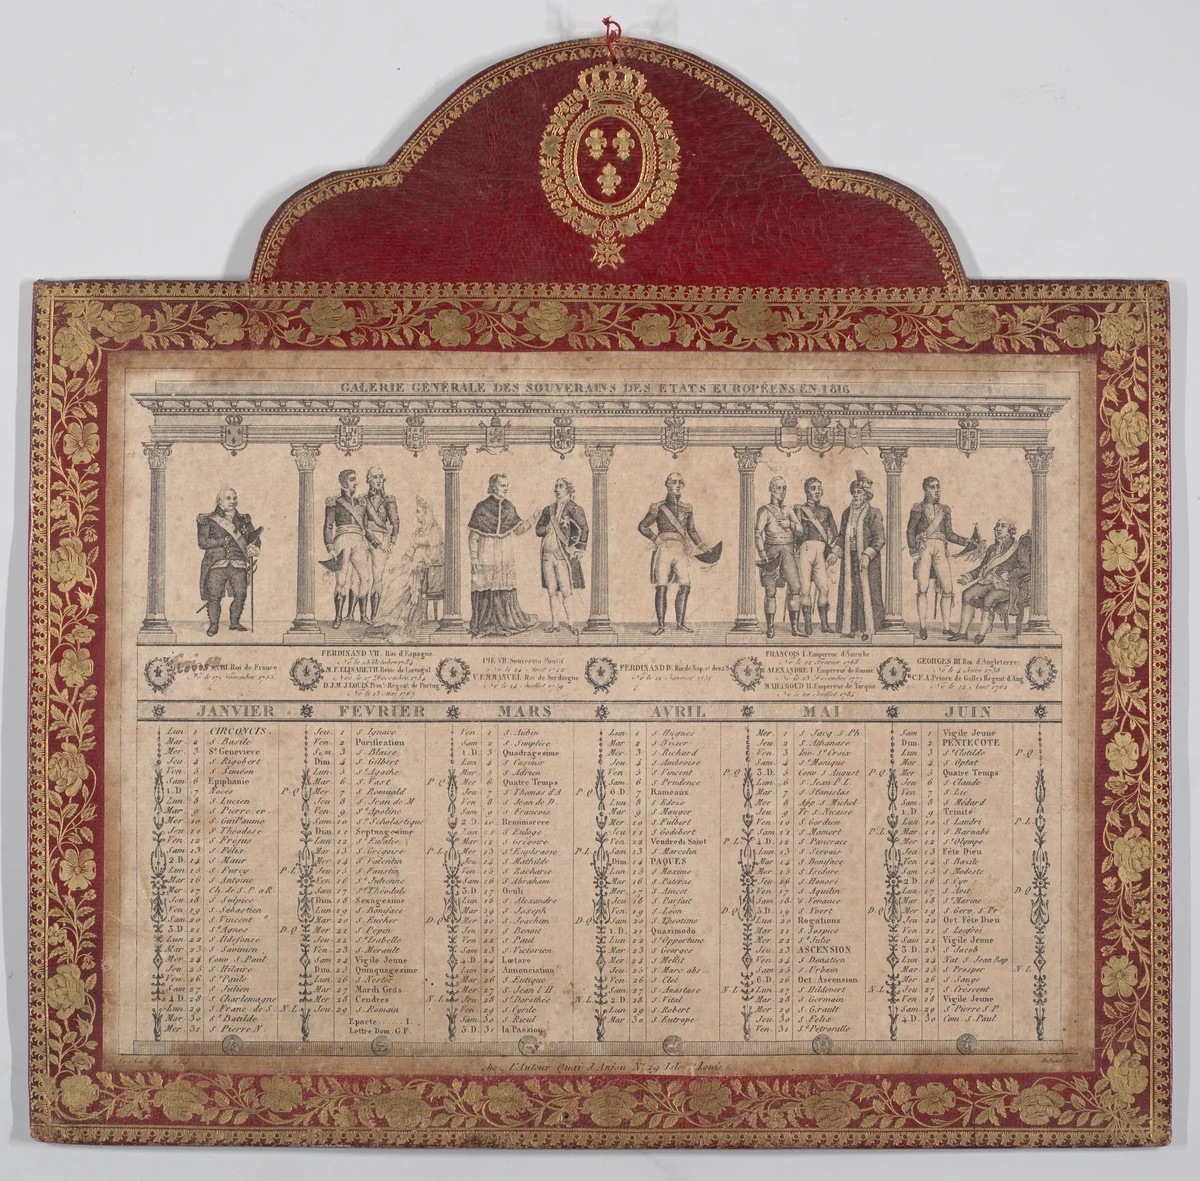 GALERIE GÉNÉRALE DES SOUVERAINS DES ETATS EUROPÉENS EN 1816
LOUIS XVIII. Roi de France
Né le 17 Novembre 1755
FERDINAND VII. Roi d'Espagne
Né le 13 Octobre 1784
M.F. ELISABETH. Reine de Portugal
Née le 17 Décembre 1734
D.J.M.J. LOUIS. Prin. Régent de Portug.
Né le 13 Mai 1767
PIE VII. Souverain Pontif
Né le 14 Août 1742
V. EMMANUEL Roi de Sardaigne
Né le 24 Juillet 1759
FERDINAND IV Roi de Nap. et des 2 S.
Né le 12 Janvier 1751
FRANÇOIS I. Empereur d'Autriche
Né le 12 Février 1768
ALEXANDRE I. Empereur de Russie
Né le 23 Décembre 1777
MAHMOUD II. Empereur de Turquie
Né le 20 Juillet 1785
GEORGES III Roi d'Angleterre
Né le 4 Juin 1738
C.F.A. Prince de Galles Régent d'Ang.
Né le 12 Août 1762
JANVIER
Lun. 1 CIRCONCIS.
Mar. 2 S. Basile
Mer. 3 Ste Genevieve
Jeu. 4 S. Rigobert
Ven. 5 S. Siméon
Sam. 6 Epiphanie
1. D. 7 Noces P.Q
Lun. 8 S. Lucien
Mar. 9 S. Pierre ev.
Mer. 10 S. Guillaume
Jeu. 11 S. Théodose
Ven. 12 S. Fréjus
Sam. 13 S. Félix
2. D. 14 S. Maur
Lun. 15 S. Furcy P.L
Mar. 16 S. Antoine
Mer. 17 Ch. de S.P. a R.
Jeu. 18 S. Sulpice
Ven. 19 S. Sébastien
Sam. 20 S. Vincent
3. D. 21 Ste Agnès D.Q
Lun. 22 S. Ildefonse
Mar. 23 S. Savinien
Mer. 24 Conv. S. Paul
Jeu. 25 S. Hilaire
Ven. 26 Ste Paule
Sam. 27 S. Julien
4. D. 28 S. Charlemagne
Lun. 29 S. Franc. de S. N.L
Mar. 30 Ste Batilde
Mer. 31 S. Pierre N.
FÉVRIER
Jeu. 1 S. Ignace
Ven. 2 Purification
Sam. 3 S. Blaise
Dim. 4 S. Gilbert
Lun. 5 Ste Agathe
Mar. 6 S. Vast P.Q
Mer. 7 S. Romuald
Jeu. 8 S. Jean de M.
Ven. 9 Ste Apoline
Sam. 10 Ste Scholastique
Dim. 11 Septuagesime
Lun. 12 Ste Eulalie
Mar. 13 S. Grégoire P.L
Mer. 14 S. Valentin
Jeu. 15 S. Faustin
Ven. 16 Ste Julienne
Sam. 17 S. Théodule
Dim. 18 Sexagesime
Lun. 19 S. Boniface
Mar. 20 S. Eucher D.Q
Mer. 21 S. Pepin
Jeu. 22 Ste Isabelle
Ven. 23 S. Merault
Sam. 24 Vigile Jeune
Dim. 25 Quinquagesime
Lun. 26 S. Nestor
Mar. 27 Mardi Gras
Mer. 28 Cendres N.L
Jeu. 29 S. Romain
Epacte I.
Lettre Dom. G.F.
MARS
Ven. 1 S. Aubin
Sam. 2 S. Simplice
1. D. 3 Quadragesime
Lun. 4 S. Casimir
Mar. 5 S. Adrien
Mer. 6 Quatre Temps
Jeu. 7 S. Thomas d'A P.Q
Ven. 8 S. Jean de D.
Sam. 9 S. Francois
2. D. 10 Reminiscere
Lun. 11 S. Euloge
Mar. 12 S. Grégoire
Mer. 13 S. Euphrasie P.L
Jeu. 14 S. Mathilde
Ven. 15 S. Zacharie
Sam. 16 S. Abraham
3. D. 17 Oculi
Lun. 18 S. Alexandre
Mar. 19 S. Joseph
Mer. 20 S. Joachim D.Q
Jeu. 21 S. Benoit
Ven. 22 S. Paul
Sam. 23 S. Victorien
4. D. 24 Lœtare
Lun. 25 Annonciation
Mar. 26 S. Eutique
Mer. 27 S. Jean l'H
Jeu. 28 S. Dorothée N.L
Ven. 29 S. Cyrile
Sam. 30 S. Rieul
5. D. 31 la Passion
AVRIL
Lun. 1 S. Hugues
Mar. 2 S. Nisier
Mer. 3 S. Richard
Jeu. 4 S. Ambroise
Ven. 5 S. Vincent P.Q
Sam. 6 S. Prudence
6. D. 7 Rameaux
Lun. 8 S. Edese
Mar. 9 S. Mauger
Mer. 10 S. Fulbert
Jeu. 11 S. Godebert
Ven. 12 Vendredi Saint P.L
Sam. 13 S. Marcelin
Dim. 14 PAQUES
Lun. 15 S. Maxime
Mar. 16 S. Paterne
Mer. 17 S. Anicet
Jeu. 18 S. Parfait
Ven. 19 S. Léon D.Q
Sam. 20 S. Theotime
1. D. 21 Quasimodo
Lun. 22 Ste Opportune
Mar. 23 S. Georges
Mer. 24 S. Mellit
Jeu. 25 S. Marc abs.
Ven. 26 S. Clet
Sam. 27 S. Anastase N.L
2. D. 28 S. Vital
Lun. 29 S. Robert
Mar. 30 S. Eutrope
MAI
Mer. 1 S. Jacq. S. Ph
Jeu. 2 S. Athanase
Ven. 3 Inv. Ste Croix
Sam. 4 Ste Monique
3. D. 5 Conv. S. August P.Q
Lun. 6 S. Jean P.L.
Mar. 7 S. Stanislas
Mer. 8 App. S. Michel
Jeu. 9 Tr. S. Nicaise
Ven. 10 S. Gordien
Sam. 11 S. Mamert P.L
4. D. 12 S. Pancrace
Lun. 13 S. Servais
Mar. 14 S. Boniface
Mer. 15 S. Isidore
Jeu. 16 S. Honoré
Ven. 17 S. Aquilin
Sam. 18 S. Venance
5. D. 19 S. Yvert D.Q
Lun. 20 Rogations
Mar. 21 S. Hospice
Mer. 22 Ste Julie
Jeu. 23 ASCENSION
Ven. 24 S. Donatien
Sam. 25 S. Urbain
6. D. 26 Oct. Ascension
Lun. 27 S. Hildevert N.L
Mar. 28 S. Germain
Mer. 29 S. Girault
Jeu. 30 S. Felix
Ven. 31 Ste Petronille
JUIN
Sam. 1 Vigile Jeune
Dim. 2 PENTECOTE
Lun. 3 Ste Clotilde P.Q
Mar. 4 S. Optat
Mer. 5 Quatre Temps
Jeu. 6 S. Claude
Ven. 7 S. Lie
Sam. 8 S. Médard
1. D. 9 Trinité
Lun. 10 S. Landri P.L
Mar. 11 S. Barnabé
Mer. 12 Ste Olympe
Jeu. 13 Fête Dieu
Ven. 14 S. Basile
Sam. 15 S. Modeste
2. D. 16 S. Cyr
Lun. 17 S. Avit D.Q
Mar. 18 Ste Marine
Mer. 19 S. Gerv. S. Pr
Jeu. 20 Oct. Fête Dieu
Ven. 21 S. Leufroi
Sam. 22 Vigile Jeune
3. D. 23 S. Jacob
Lun. 24 Nat. S. Jean Bap
Mar. 25 S. Prosper N.L
Mer. 26 S. Sauge
Jeu. 27 S. Crescent
Ven. 28 Vigile Jeune
Sam. 29 S. Pierre S.P.
4. D. 30 Com. S. Paul
chez l'Auteur Quai d'Anjou No. 29 Isle S. Louis